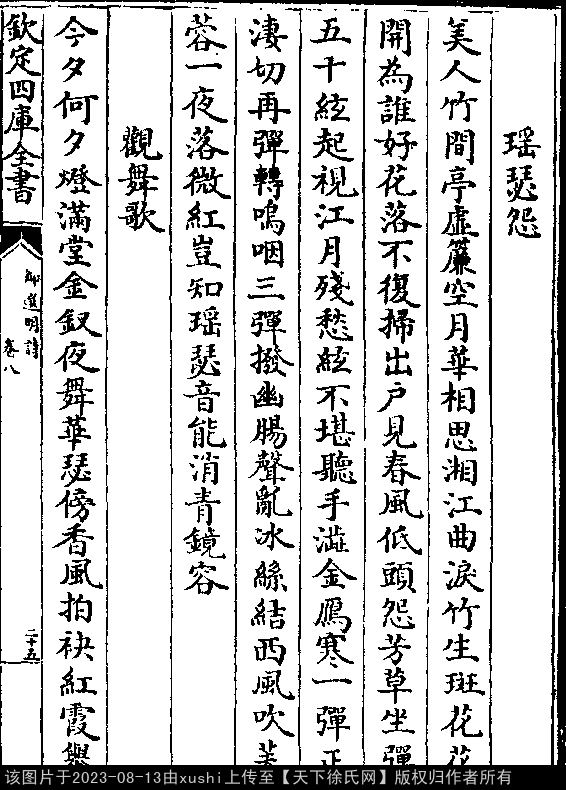 瑶瑟怨
美人竹間亭虛簾空月華相思湘江曲淚竹生斑花花
開為誰好花落不復掃出户見春風低頭怨芳草坐彈
五十絃起視江月殘愁絃不堪聽手澁金鴈寒一彈正
淒切再彈轉嗚咽三彈撥幽腸聲亂冰絲結西風吹芙
蓉一夜落微紅豈知瑶瑟音能消青鏡容
觀舞歌
今夕何夕燈滿堂金釵夜舞華瑟傍香風拍袂紅霞舉
欽定四庫全書
御選明詩
卷八
二十五
该图片于2023-08-13由xushi上传至【天下徐氏网】版权归作者所有